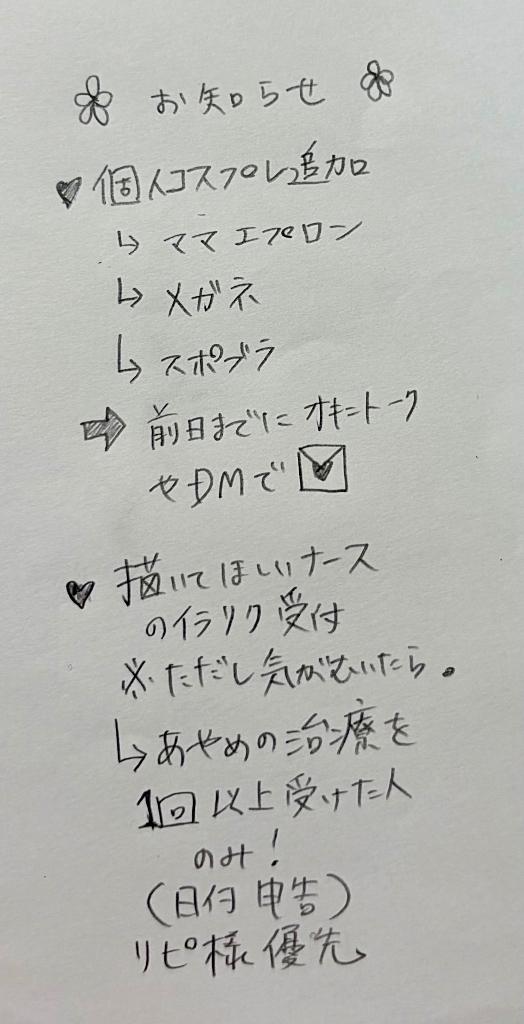 お知らせ
♥ 個人コスプレ追加
↳ ママエプロン
↳ メガネ
↳ スポブラ
⇒ 前日までにオキニトーク
やDMで
♥ 描いてほしいナース
のイラリク受付
※ただし気がむいたら。
↳ あやめの治療を
1回以上受けた人
のみ!
(日付申告)
リピ様優先